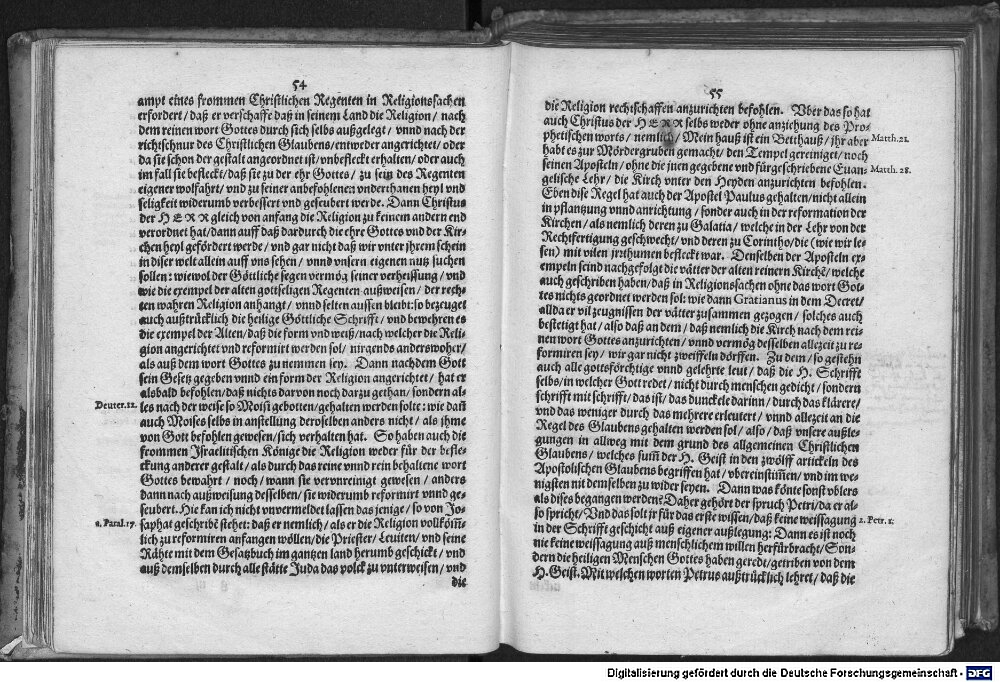 54
ampt eines frommen Christlichen Regenten in Religionssachen
erfordert / daß er verschaffe daß in seinem Land die Religion / nach
dem reinen wort Gottes durch sich selbs außgelegt / vnnd nach der
richtschnur des Christlichen Glaubens / entweder angerichtet / oder
da sie schon der gestalt angeordnet ist / vnbefleckt erhalten / oder auch
im fall sie befleckt / daß sie zu der ehr Gottes / zu sein des Regenten
eigener wolfahrt / vnd zu seiner anbefohlenen vnderthanen heyl vnd
seligkeit widerumb verbessert vnd geseubert werde. Dann Christus
der HERR gleich von anfang die Religion zu keinem andern end
verordnet hat / dann auff daß dardurch die ehre Gottes vnd der Kir-
chen heyl gefördert werde / vnd gar nicht daß wir vnter jhrem schein
in diser welt allein auff vns sehen / vnnd vnsern eigenen nutz suchen
sollen: wiewol der Göttliche segen vermög seiner verheissung / vnd
wie die exempel der alten gottseligen Regenten außweisen / der rech-
ten wahren Religion anhangt / vnnd selten aussen bleibt: so bezeuget
auch außtrücklich die heilige Göttliche Schrifft / vnd bewehren es
die exempel der Alten / daß die form vnd weiß / nach welcher die Reli-
gion angerichtet vnd reformirt werden sol / nirgends anderswoher /
als auß dem wort Gottes zu nemmen sey. Dann nachdem Gott
sein Gesetz gegeben vnnd ein form der Religion angerichtet / hat er
alsbald befohlen / daß nichts darvon noch darzu gethan / sondern al-
Deuter. 12. les nach der weise so Moisi gebotten / gehalten werden solte: wie dañ
auch Moises selbs in anstellung deroselben anders nicht / als jhme
von Gott befohlen gewesen / sich verhalten hat. So haben auch die
frommen Israelitischen Könige die Religion weder für der befle-
ckung anderer gestalt / als durch das reine vnnd rein behaltene wort
Gottes bewahrt / noch / wann sie verunreinigt gewesen / anders
dann nach außweisung desselben / sie widerumb reformirt vnnd ge-
seubert. Hie kan ich nicht vnvermeldet lassen das jenige / so von Jo-
2. Paral. 17. saphat geschribē stehet: daß er nemlich / als er die Religion vollköm̃-
lich zu reformiren anfangen wöllen / die Priester / Leuiten / vnd seine
Rähte mit dem Gesatzbuch im gantzen land herumb geschickt / vnd
auß demselben durch alle stätte Juda das volck zu vnterweisen / vnd
die
55
die Religion rechtschaffen anzurichten befohlen. Vber das so hat
auch Christus der HERR selbs weder ohne anziehung des Pro-
phetischen worts / nemlich / Mein hauß ist ein Betthauß / jhr aber Matth. 21.
habt es zur Mördergruben gemacht / den Tempel gereiniget / noch
seinen Aposteln / ohne die jnen gegebene vnd fürgeschriebene Euan- Matth. 28.
gelische Lehr / die Kirch vnter den Heyden anzurichten befohlen.
Eben dise Regel hat auch der Apostel Paulus gehalten / nicht allein
in pflantzung vnnd anrichtung / sonder auch in der reformation der
Kirchen / als nemlich deren zu Galatia / welche in der Lehr von der
Rechtfertigung geschwecht / vnd deren zu Corintho / die (wie wir le-
sen) mit vilen jrrthumen befleckt war. Denselben der Aposteln ex-
empeln seind nachgefolgt die vätter der alten reinern Kirchē / welche
auch geschriben haben / daß in Religionssachen ohne das wort Got-
tes nichts geordnet werden sol: wie dann Gratianus in dem Decret /
allda er vil zeugnissen der vätter zusammen gezogen / solches auch
bestetigt hat / also daß an dem / daß nemlich die Kirch nach dem rei-
nen wort Gottes anzurichten / vnnd vermög desselben allezeit zu re-
formiren sey / wir gar nicht zweiffeln dörffen. Zu dem / so gestehn
auch alle gottsförchtige vnnd gelehrte leut / daß die H. Schrifft
selbs / in welcher Gott redet / nicht durch menschen gedicht / sondern
schrifft mit schrifft / das ist / das dunckele darinn / durch das klärere /
vnd das weniger durch das mehrere erleutert / vnnd allezeit an die
Regel des Glaubens gehalten werden sol / also / daß vnsere außle-
gungen in allweg mit dem grund des allgemeinen Christlichen
Glaubens / welches sum̃ der H. Geist in den zwölff artickeln des
Apostolischen Glaubens begriffen hat / vbereinstim̃en / vnd im we-
nigsten nit demselben zu wider seyen. Dann was könte sonst vblers
als dises begangen werden? Daher gehört der spruch Petri / da er al-
so spricht / Vnd das solt jr für das erste wissen / daß keine weissagung 2. Petr. 1.
in der Schrifft geschicht auß eigener außlegung: Dann es ist noch
nie keine weissagung auß menschlichem willen herfürbracht / Son-
dern die heiligen Menschen Gottes haben geredt / getriben von dem
H. Geist. Mit welchen worten Petrus außtrücklich lehret / daß die
Digitalisierung gefördert durch die Deutsche Forschungsgemeinschaft - DFG